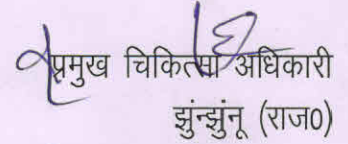 प्रमुख चिकित्सा अधिकारी
झुंन्झुंनू (राज0)